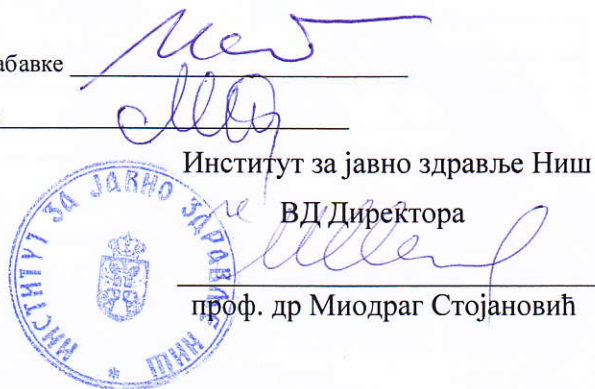 абавке
Институт за јавно здравље Ниш
ВД Директора
проф. др Миодраг Стојановић
ИНСТИТУТ ЗА ЈАВНО ЗДРАВЉЕ НИШ *